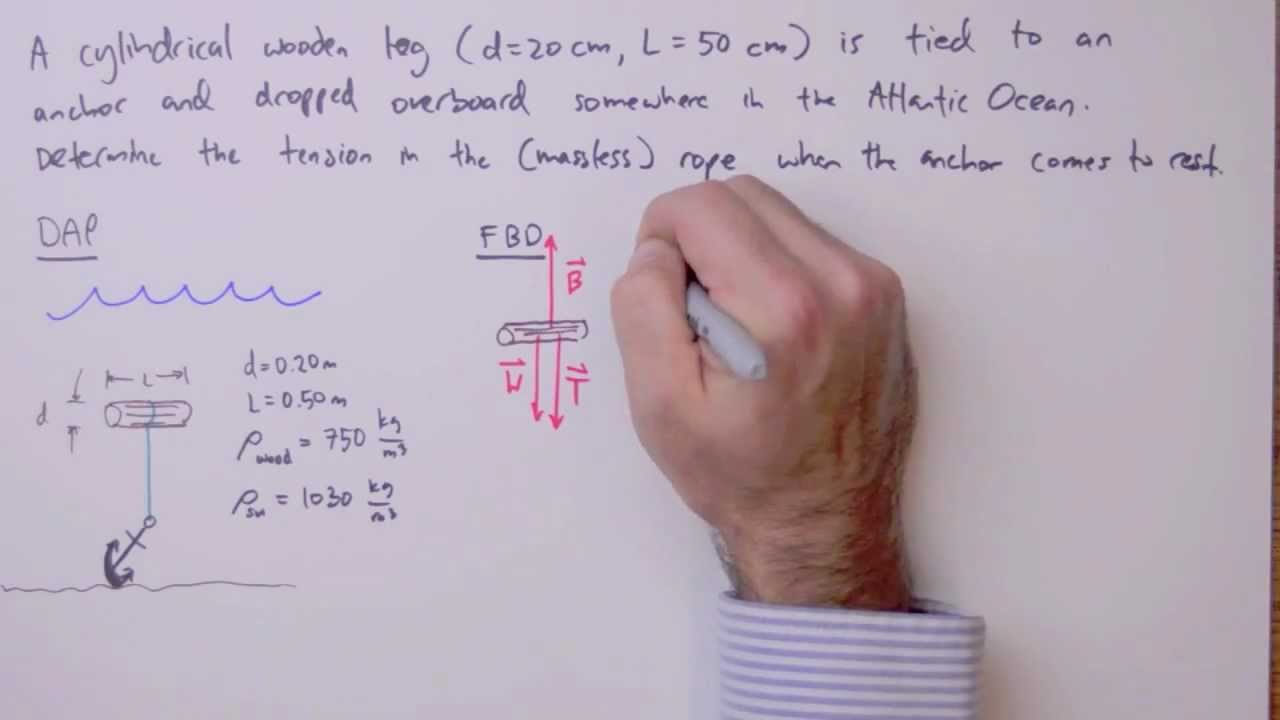 A cylindrical wooden leg (d=20 cm, L = 50 cm) is tied to an
anchor and dropped overboard somewhere in the Atlantic Ocean.
Determine the tension in the (massless) rope when the anchor comes to rest.
DAP
L
d
d = 0.20m
L = 0.50m
ρwood = 750 kg/m³
ρsw = 1030 kg/m³
FBD
B
W
T